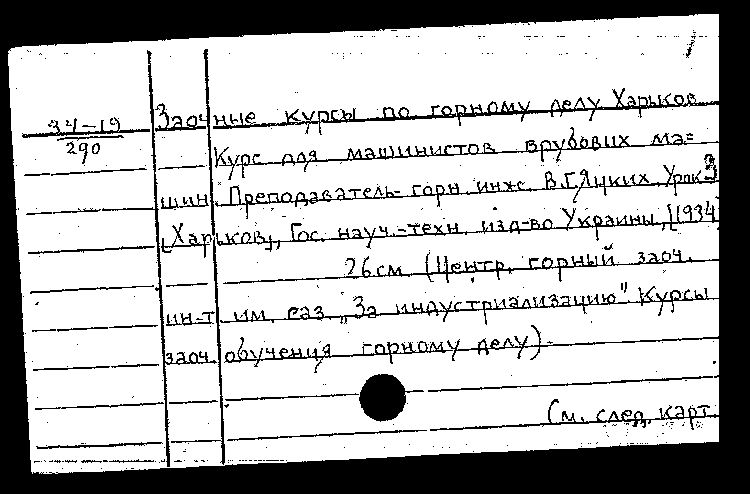 34-19
290
Заочные курсы по горному делу Харьков
Курс для машинистов врубовых ма=
шин. Преподаватель- горн. инж. В.Г.Яцких. Урок 3
[Харьков], Гос. науч.-техн. изд-во Украины, [1934]
26 см. (Центр. горный заоч.
ин-т им. газ. „За индустриализацию" Курсы
заоч. обучения горному делу).
См. след. карт.